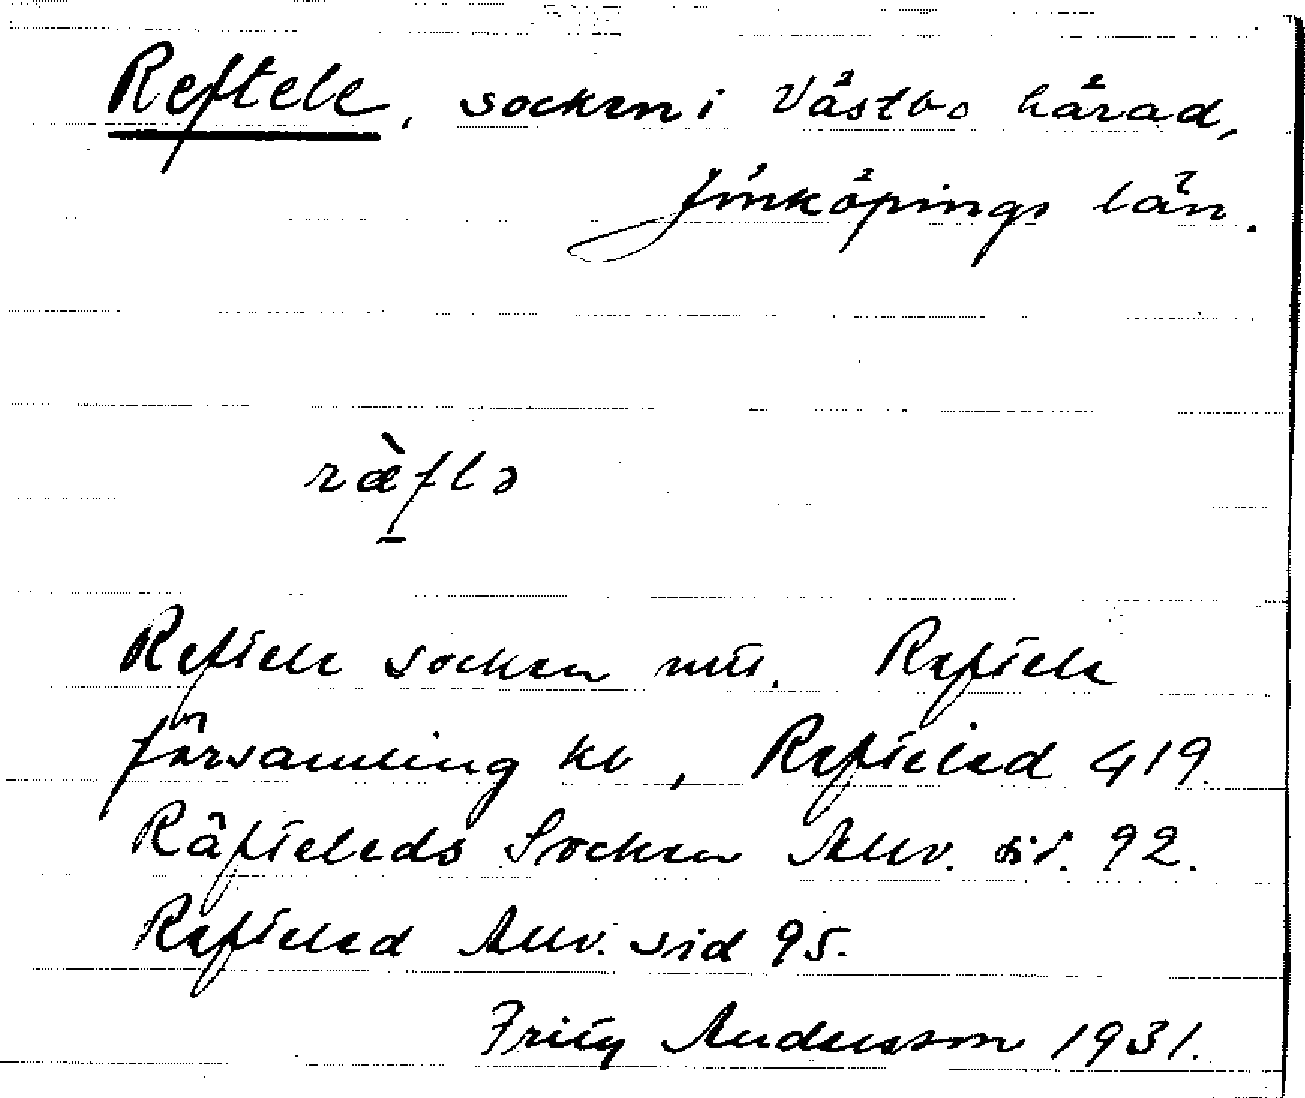 Reftele, socken i Västbo härad,
Jönköpings län.
ræ̀flə
Reftele socken mtl. Reftele
församling kb, Refteled 419.
Räfteleds Socken Allv. sid. 92.
Refteled Allv. sid 95.
Fritz Andersson 1931.